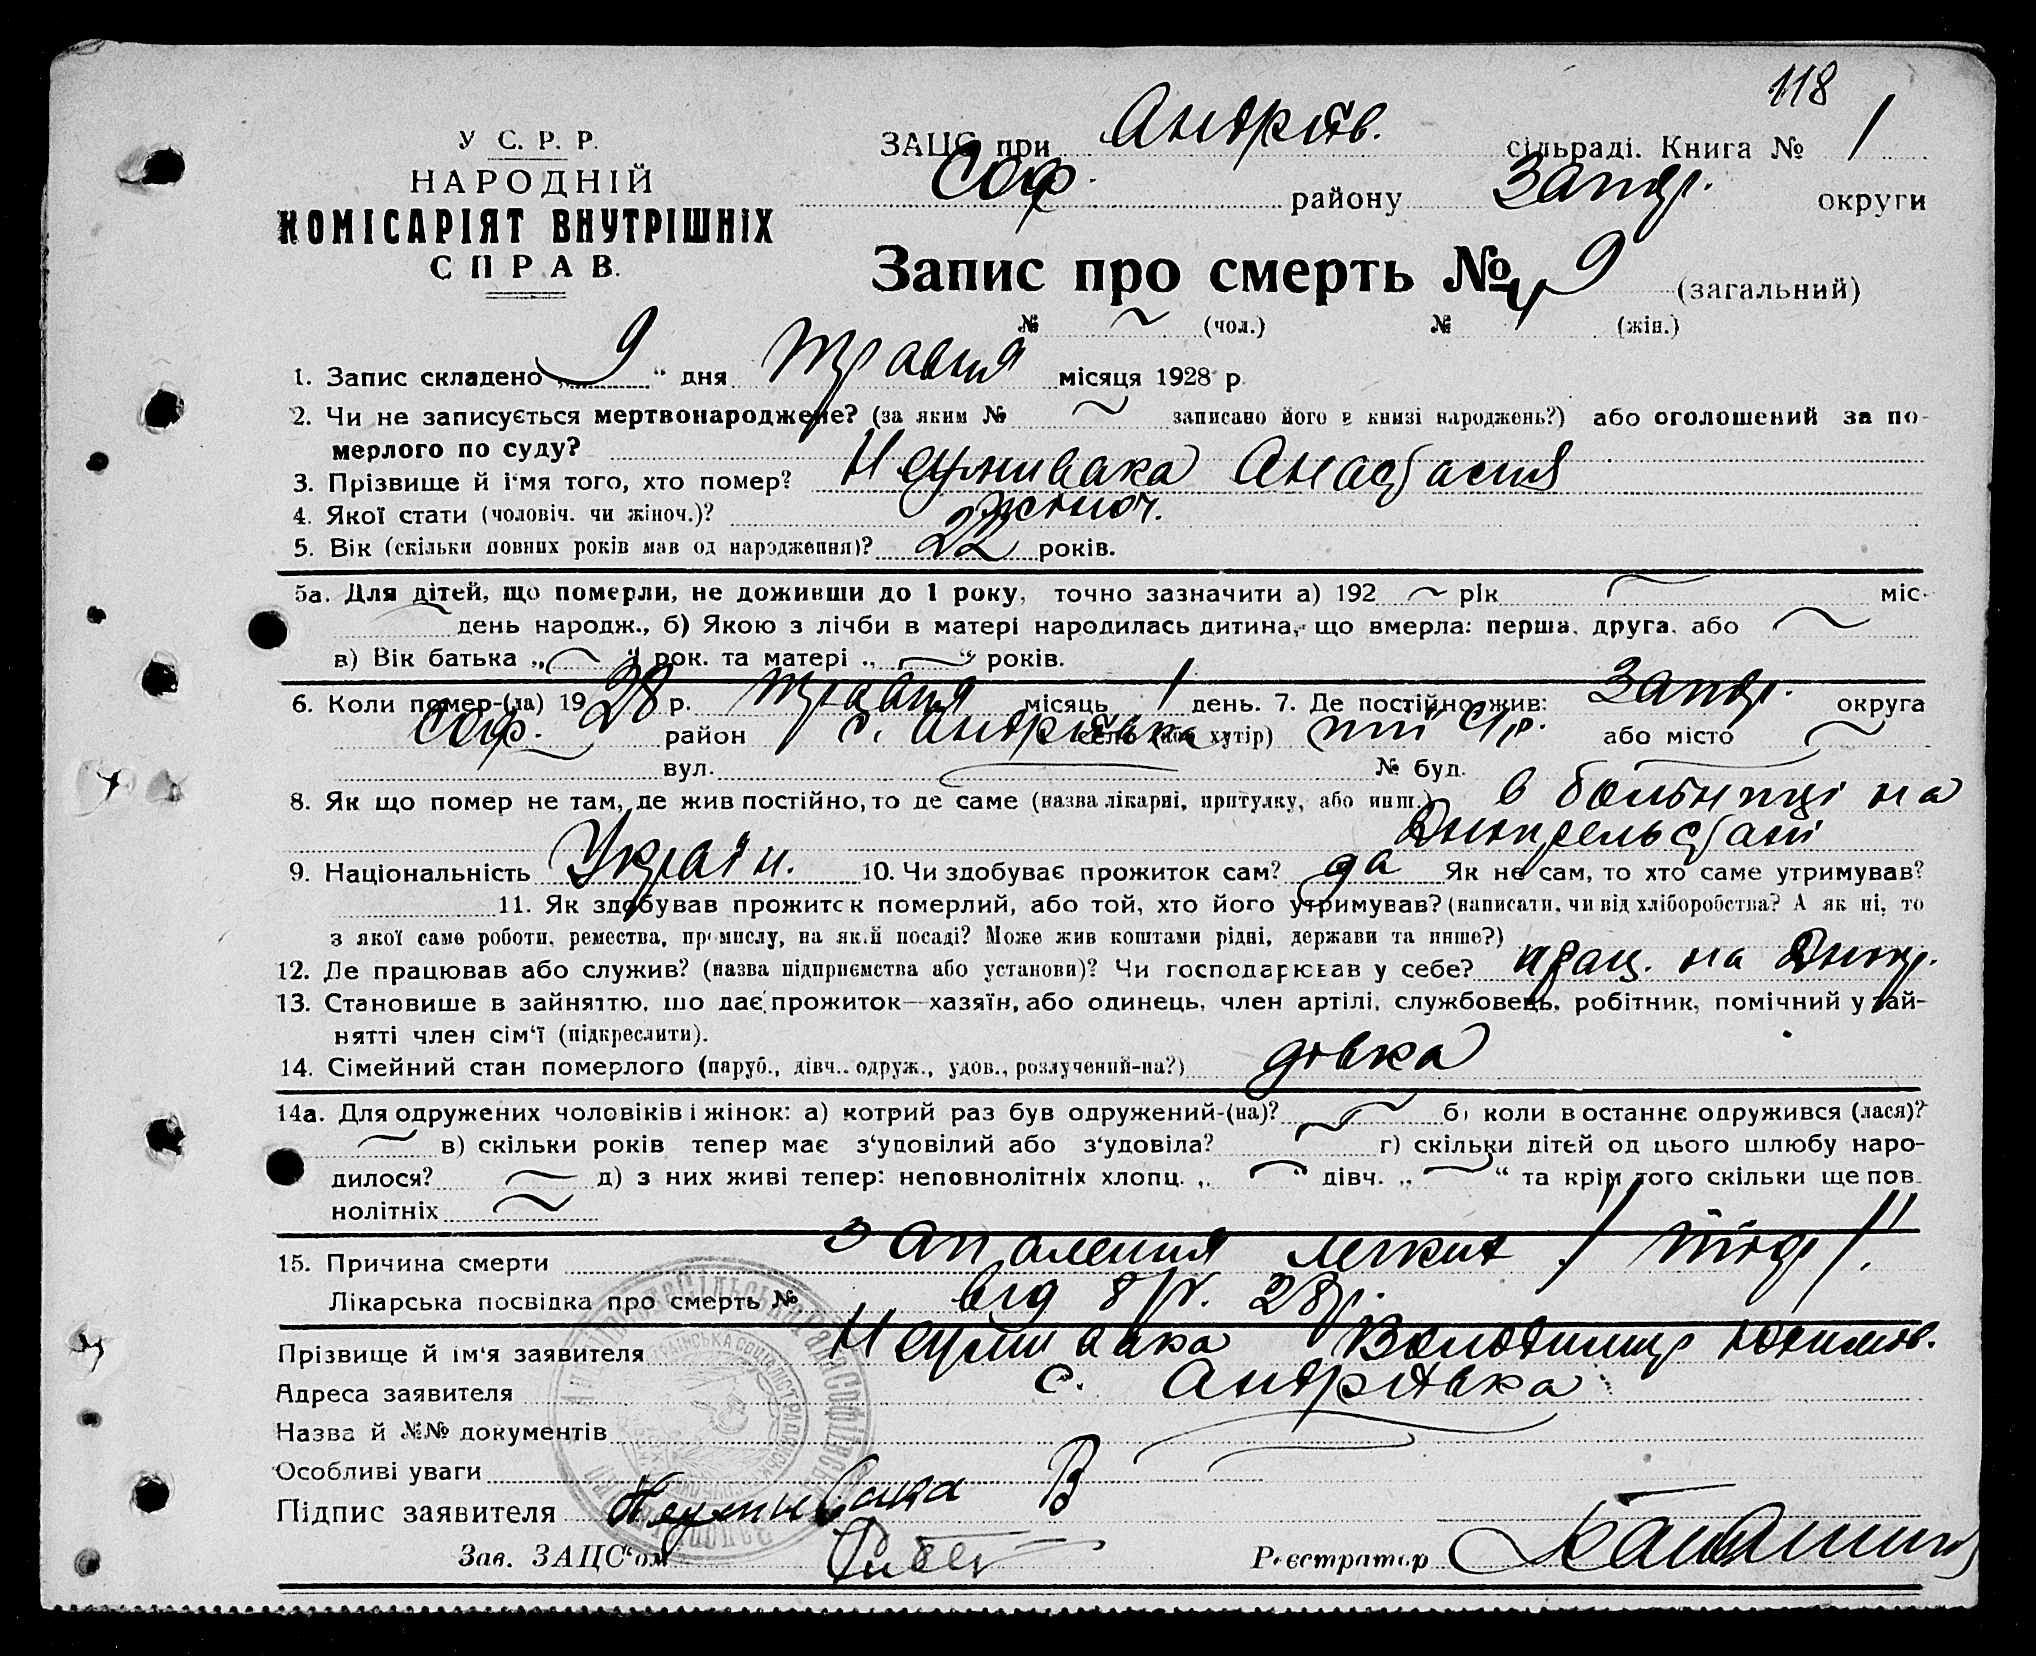 118
У С. Р. Р.
НАРОДНІЙ
КОМІСАРІЯТ ВНУТРІШНІХ
СПРАВ.
ЗАЦС при Андріїв. сільраді. Книга № 1
Соф. району Запор. округи
Запис про смерть № 9 (загальний)
№ (чол.) № 4 (жін.)
1. Запис складено „ 9 “ дня травня місяця 1928 р.
2. Чи не записується мертвонароджене? (за яким № записано його в книзі народжень?) або оголошений за по-
мерлого по суду?
3. Прізвище й ім'я того, хто помер? Неумивака Анастасия
4. Якої стати (чоловіч. чи жіноч.)? жіноч.
5. Вік (скільки повних років мав од народження)? 22 років.
5а. Для дітей, що померли, не доживши до 1 року, точно зазначити а) 192 рік міс.
день народж., б) Якою з лічби в матері народилась дитина, що вмерла: перша, друга, або
в) Вік батька „ “ рок. та матері „ “ років.
6. Коли помер-(ла) 1928 р. травня місяць 1 день. 7. Де постійно жив: Запор. округа
Соф. район с. Андріївка село (або хутір) тії с/р. або місто
вул. № буд.
8. Як що помер не там, де жив постійно, то де саме (назва лікарні, притулку, або инш.) в больниці на
Дніпрельстані
9. Національність Україн. 10. Чи здобуває прожиток сам? да Як не сам, то хто саме утримував?
11. Як здобував прожиток померлий, або той, хто його утримував? (написати, чи від хліборобства? А як ні, то
з якої саме роботи, ремества, промислу, на якій посаді? Може жив коштами рідні, держави та инше?)
12. Де працював або служив? (назва підприємства або установи)? Чи господарював у себе? прац. на Дніпр.
13. Становише в зайняттю, що дає прожиток—хазяїн, або одинець, член артілі, службовець, робітник, помічний у зай-
нятті член сім'ї (підкреслити).
14. Сімейний стан померлого (паруб., дівч., одруж., удов., розлучений-на?) дівка
14а. Для одружених чоловіків і жінок: а) котрий раз був одружений-(на)? б) коли востаннє одружився (лася)?
в) скільки років тепер має з'удовілий або з'удовіла? г) скільки дітей од цього шлюбу наро-
дилося? д) з них живі тепер: неповнолітніх хлопц. „ “ дівч. „ “ та крім того скільки ще пов-
нолітніх
15. Причина смерти Запаления легких
Лікарська посвідка про смерть № від 8/V. 28р.
Прізвище й ім'я заявителя Неумивака Володимир Юхимов.
Адреса заявителя с. Андріївка
Назва й №№ документів
Особливі уваги
Підпис заявителя Неумивака В
Зав. ЗАЦС'ом
Реєстратор